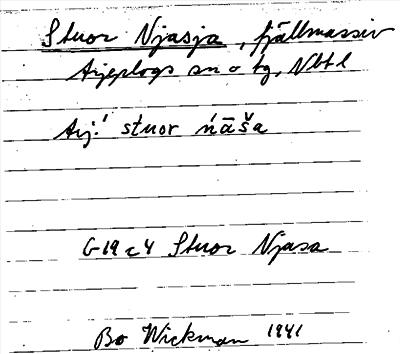 Stuor Njasja, fjällmassiv
Arjeplogs sn o tg, Vbtl
Arj.! stuor ńāša
G-19 c 4 Stuor Njasa
Bo Wickman 1941